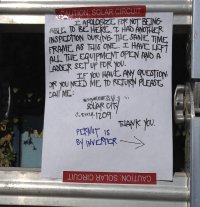 CAUTION: SOLAR CIRCUIT
I APOLOGIZE FOR NOT BEING
ABLE TO BE HERE. I HAD ANOTHER
INSPECTION DURING THE SAME TIME
FRAME AS THIS ONE. I HAVE LEFT
ALL THE EQUIPMENT OPEN AND A
LADDER SET UP FOR YOU.
IF YOU HAVE ANY QUESTION
OR YOU NEED ME TO RETURN PLEASE
CALL ME:
SOLAR CITY
1209
THANK YOU.
PERMIT IS
BY INVERTER
CAUTION: SOLAR CIRCUIT